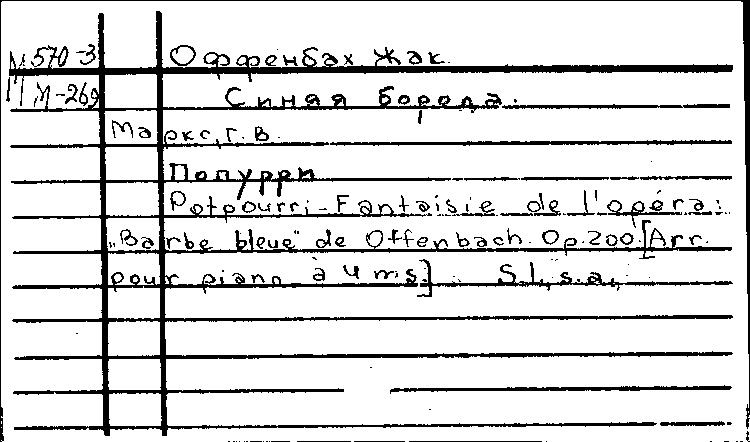 М 570-3 Оффенбах Жак.
М-269 Синяя борода.
Маркс, Г. В.
Попурри
Potpourri-Fantaisie de l'opéra:
„Barbe bleue" de Offenbach. Op. 200. [Arr.
pour piano à 4 ms]. S.l., s.a.,